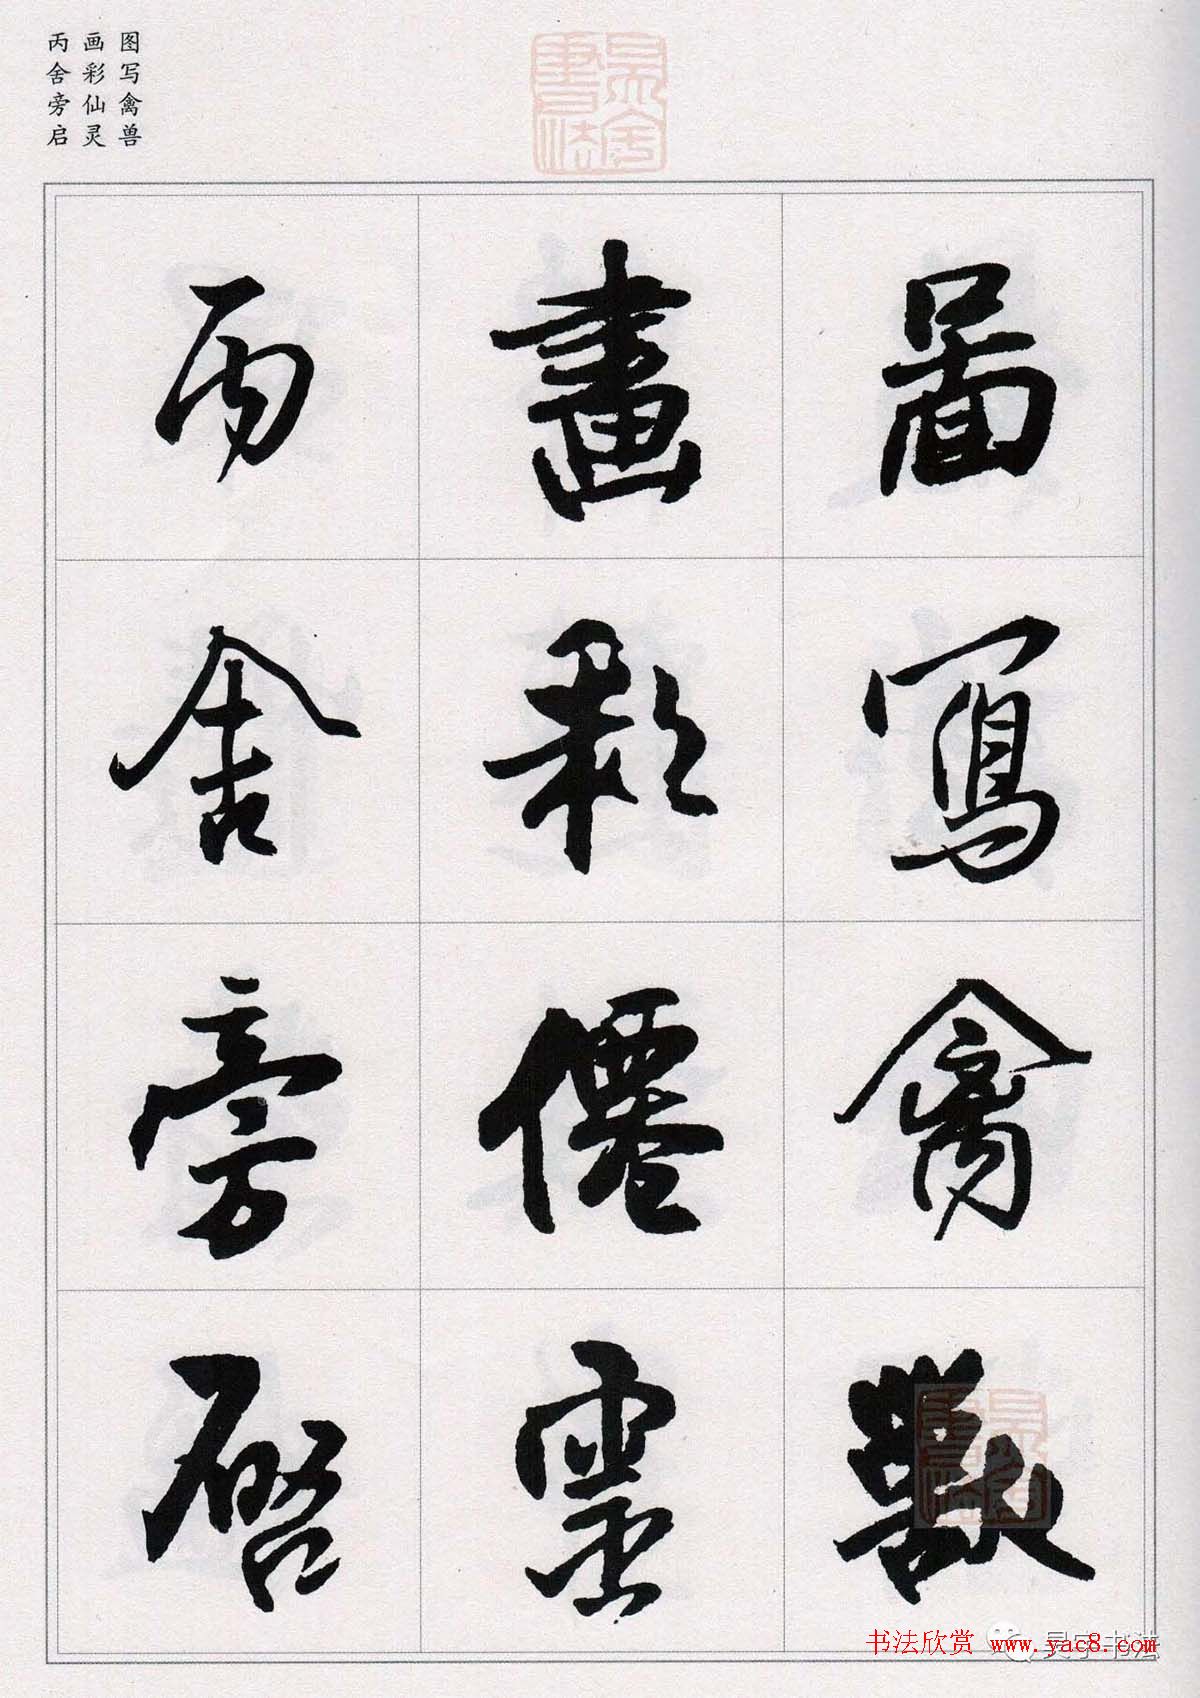 图写禽兽
画彩仙灵
丙舍旁启
昙宇書法
圖寫禽獸
畫彩僊靈
丙舍旁啓
书法欣赏 www.yac8.com
昙宇书法